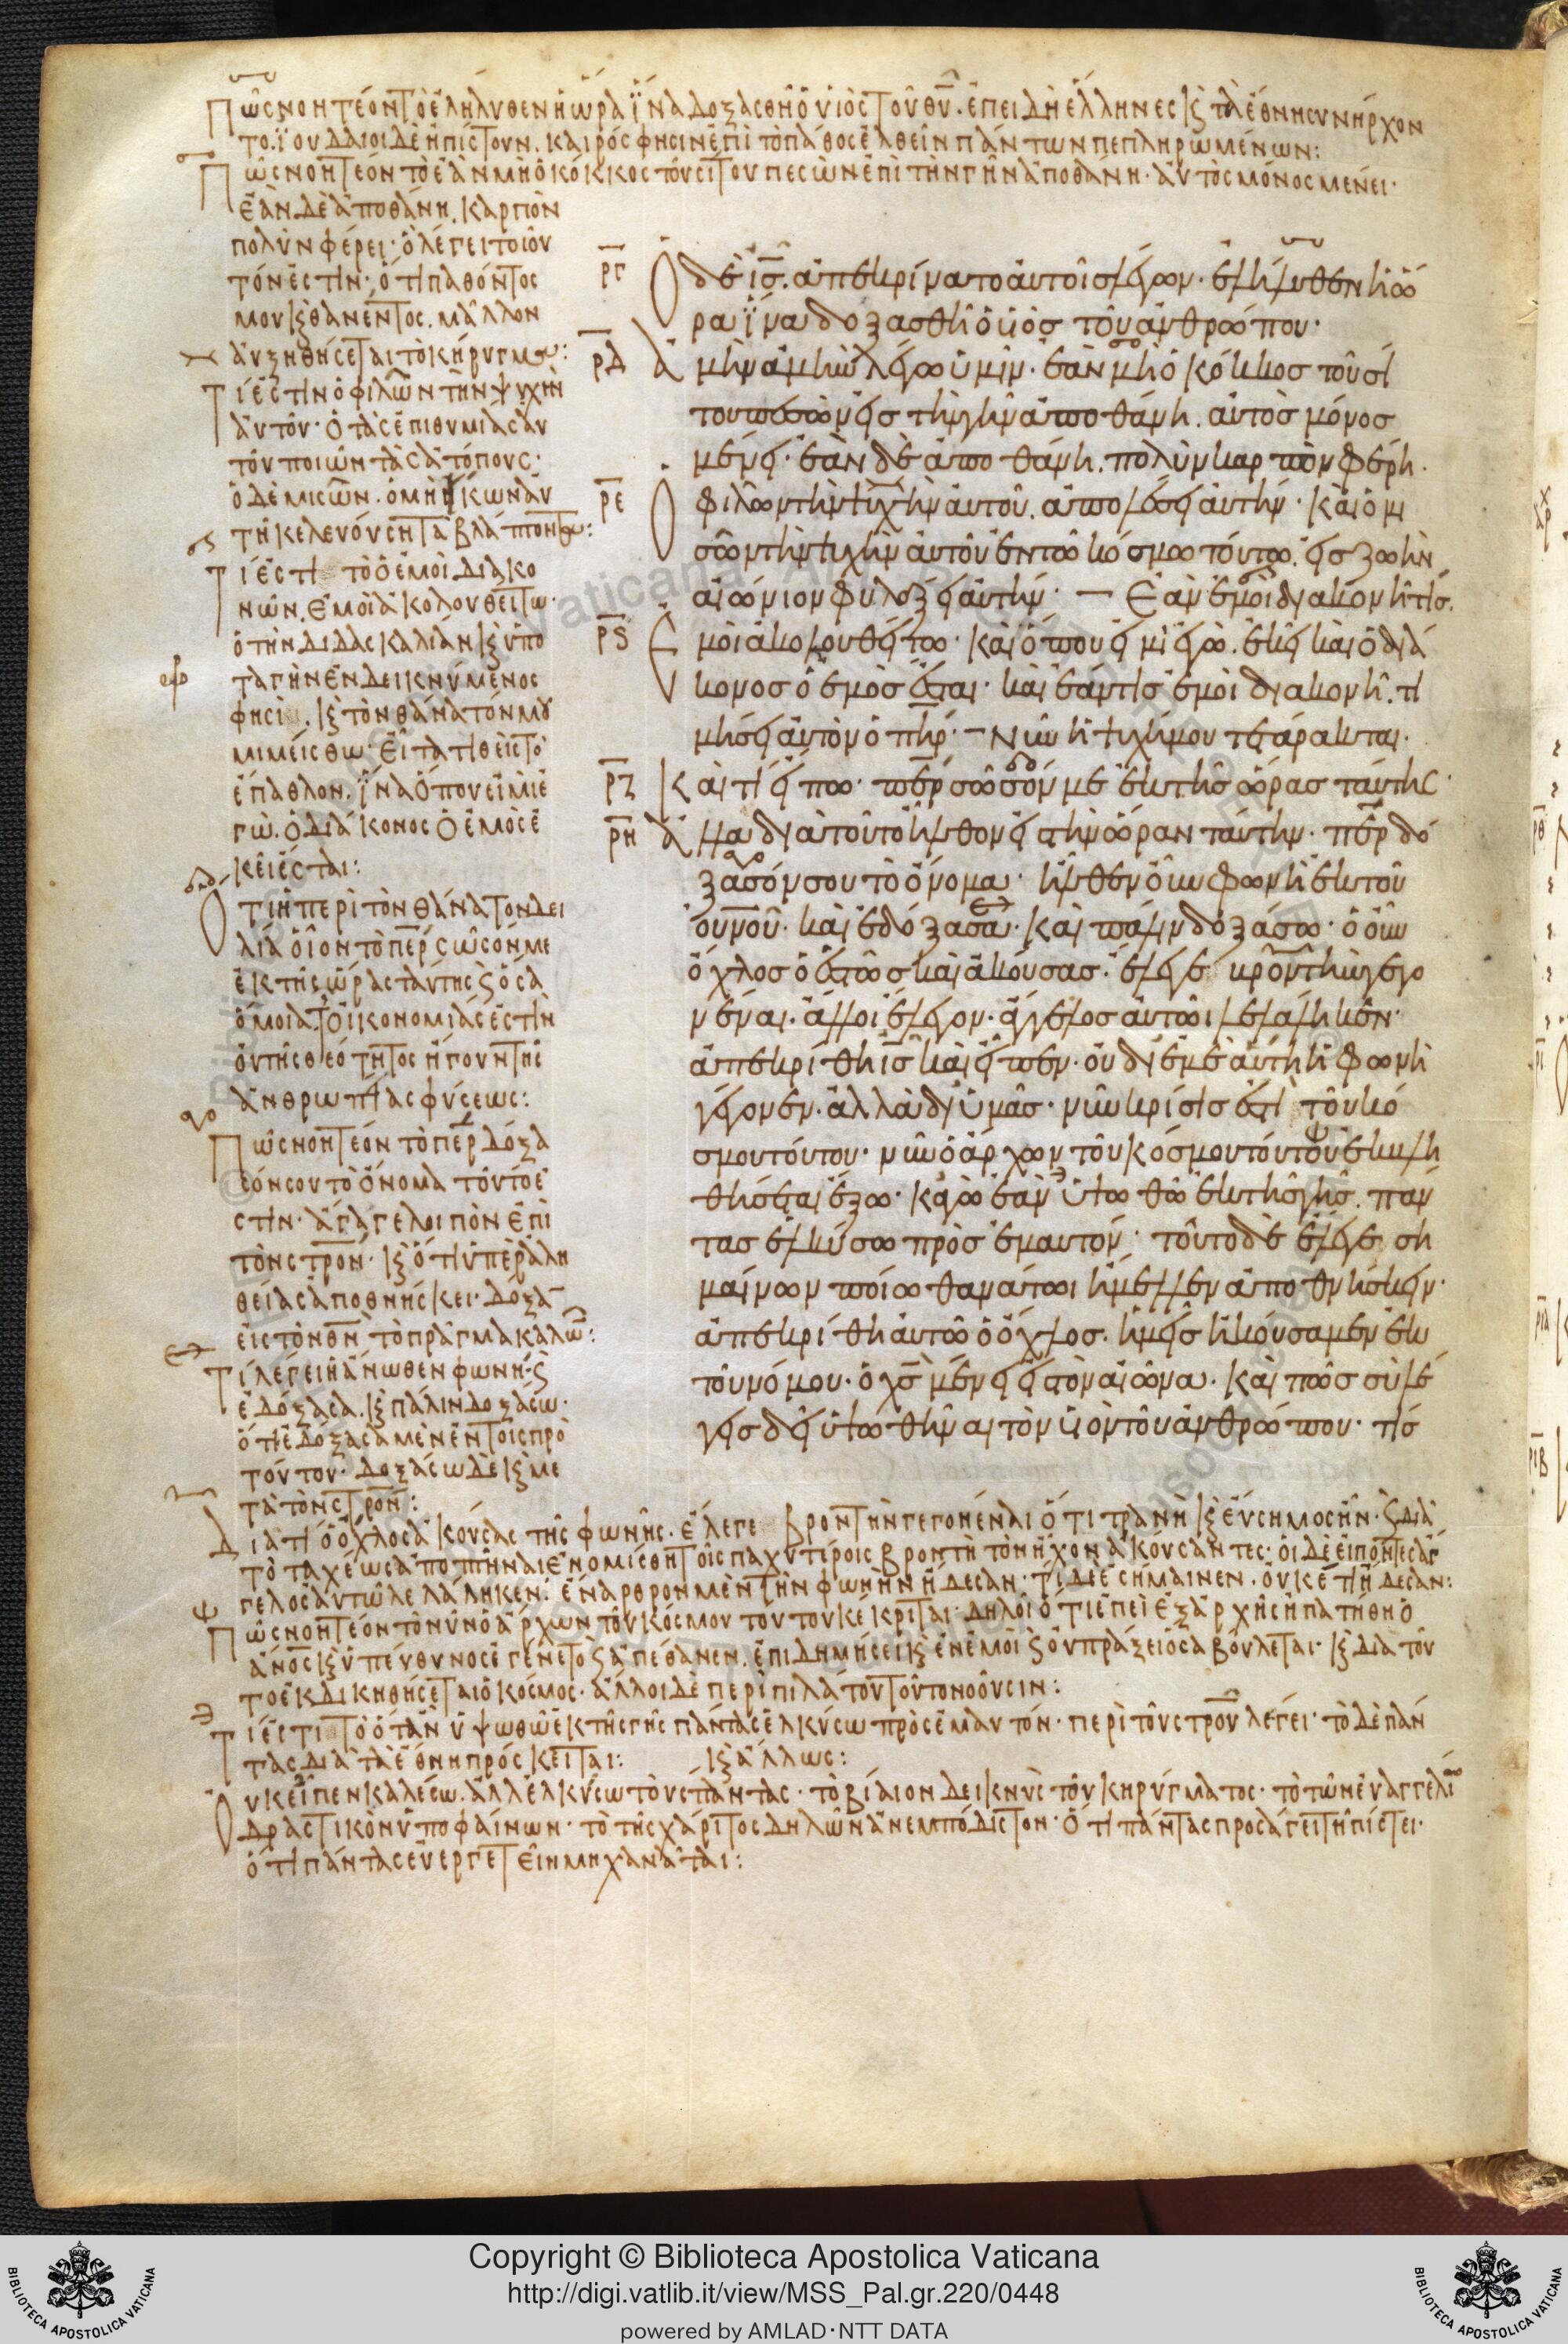 Πῶς νοητέον τὸ ἐλήλυθεν ἡ ὥρα ἵνα δοξασθῆ ὁ υἱὸς τοῦ θυ̅· ἐπειδὴ ἕλληνες κ̀ τὰ ἔθνη συνήρχον
το. ἰουδαῖοι δὲ ἠπίστουν. καιρός φησιν ἐπὶ τὸ πάθος ἐλθεῖν πάντων πεπληρωμένων:
Πῶς νοητέον τὸ ἐὰν μὴ ὁ κόκκος τοῦ σίτου πεσὼν ἐπὶ τὴν γῆν ἀποθάνη· αὐτὸς μόνος μένει·
ἐὰν δὲ ἀποθάνη, καρπὸν
πολὺν φέρει· ὃ λέγει τοιοῦ
τόν ἐστιν· ὅτι παθόντος
μου κ̀ θανέντος. μᾶλλον
αὐξηθήσεται τὸ κήρυγμα:
Τί ἐστιν ὁ φιλῶν τὴν ψυχὴν
αὐτοῦ· ὁ τὰς ἐπιθυμίας αὐ
τοῦ ποιῶν τὰς ἀτόπους·
ὁ δὲ μισῶν. ὁ μὴ εἴκων αὐ
τῆ κελευούση τὰ βλάπτοντα:
Τί ἐστι τὸ ὁ ἐμοὶ διακο
νῶν, ἐμοὶ ἀκολουθείτω·
ὁ τὴν διδασκαλίαν κ̀ ὑπο
ταγὴν ἐνδεικνύμενος
φησι. κ̀ τὸν θάνατόν μου
μιμείσθω· εἶτα τιθεὶς τὸ
ἔπαθλον. ἵνα ὅπου εἰμὶ ἐ
γώ. ὁ διάκονος ὁ ἐμὸς ἐ
κεῖ ἔσται:
Ὅτι ἡ περὶ τὸν θάνατον δει
λία οἷον τὸ πε̅ρ σῶσόν με
ἐκ τῆς ὥρας ταύτης κ̀ ὅσα
ὅμοια. οἰκονομίας ἐστὶν
οὐ τῆς θεότητος ἤγουν τῆς
ἀνθρωπίας φύσεως:
Πῶς νοητέον τὸ πε̅ρ δόξα
σόν σου τὸ ὄνομα τοῦτό ἐ
στιν· ἄγαγε λοιπὸν ἐπὶ
τὸν στρο̅ν· κ̀ ὅτι ὑπὲρ ἀλη
θείας ἀποθνήσκει· δόξα
εἰς τὸν θν̅ τὸ πρᾶγμα καλῶ:
Τί λέγει ἡ ἄνωθεν φωνὴ· κ̀
ἐδόξασα. κ̀ πάλιν δοξάσω·
ὅτι ἐδόξασα μὲν ἐν τοῖς πρὸ
τούτου· δοξάσω δὲ κ̀ με
τὰ τὸν στρο̅ν:
ργ Ὁ δὲ ις̅. ἀπεκρίνατο αὐτοῖς λέγων· ἐλήλυθεν ἡ ὥ
ρα ἵνα δοξασθῆ ὁ υἱὸς τοῦ ἀνθρώπου·
ρδ ἀμὴν ἀμὴν λέγω ὑμῖν· ἐὰν μὴ ὁ κόκκος τοῦ σί
του πεσὼν εἰς τὴν γῆν ἀποθάνη. αὐτὸς μόνος
μένει· ἐὰν δὲ ἀποθάνη, πολὺν καρπὸν φέρη.
ρε Ὁ φιλῶν τὴν ψυχὴν αὐτοῦ. ἀπολέσει αὐτήν· καὶ ὁ μι
σῶν τὴν ψυχὴν αὐτοῦ ἐν τῶ κόσμω τούτω. εἰς ζωὴν
αἰώνιον φυλάξει αὐτήν· – Ἐὰν ἐμοὶ διακονῆ τίς.
ρϛ Ἐμοὶ ἀκολουθείτω· καὶ ὅπου εἰμὶ ἐγὼ. ἐκεῖ καὶ ὁ διά
κονος ὁ ἐμὸς ἔσται· καὶ ἐάν τίς ἐμοὶ διακονῆ. τι
μήσει αὐτὸν ὁ πη̅ρ· – Νῦν ἡ ψυχή μου τετάρακται·
ρζ Καὶ τί εἴπω· πε̅ρ σῶσόν με ἐκ τῆς ὥρας ταύτης·
ρη ἀλλα διὰ τοῦτο ἦλθον εἰς τὴν ὥραν ταύτην· πε̅ρ δό
ξασόν σου τὸ ὄνομα· ἦλθεν οὖν φωνὴ ἐκ τοῦ
οὐνοῦ· καὶ ἐδόξασα· καὶ πάλιν δοξάσω· ὁ οὖν
ὄχλος ὁ ἑστὼς καὶ ἀκούσας· ἔλεγε βροντὴν γεγο
νέναι· ἄλλοι ἔλεγον· ἄγγελος αὐτῶι λελάληκεν·
ἀπεκρίθη ις̅ καὶ εἶπεν· οὐ δι ἐμὲ αὕτη ἡ φωνὴ
γέγονεν· ἀλλὰ δι ὑμᾶς· νῦν κρίσις ἐστὶ τοῦ κό
σμου τούτου· νῦν ὁ ἄρχων τοῦ κόσμου τούτου ἐκβλη
θήσεται ἔξω· κἀγὼ ἐὰν ὑψωθῶ ἐκ τῆς γῆς. πάν
τας ἑλκύσω πρὸς ἐμαυτόν· τοῦτο δὲ ἔλεγε ση
μαίνων ποίω θανάτωι ἤμελλεν ἀποθνήσκειν·
ἀπεκρίθη αὐτῶ ὁ ὄχλος. ἡμεῖς ἠκούσαμεν ἐκ
τοῦ νόμου. ὁ χς̅ μένει εἰς τὸν αἰῶνα. καὶ πῶς σὺ λέ
γεις δεῖ ὑψωθῆναι τὸν υἱὸν τοῦ ἀνθρώπου· τίς
Διατί ὁ ὄχλος ἀκούσας τῆς φωνῆς. ἔλεγε βροντὴν γεγονέναι ὅτι τρανὴ κ̀ εὔσημος ἦν· κ̀ διὰ
τὸ ταχέως ἀποπτῆναι ἐνομίσθη τοῖς παχυτέροις βροντὴ τὸν ἦχον ἀκούσαντες· οἱ δὲ εἰπόντες ἄγ
γελος αὐτῶ λελάληκεν· ἔναρθρον μὲν τὴν φωνὴν ἤδεσαν· τί δὲ ἐσήμαινεν. οὐκέτι ἤδεσαν:
Πῶς νοητέον τὸ νῦν ὁ ἄρχων τοῦ κόσμου τούτου κέκριται· δηλοῖ ὅτι ἐπεὶ ἐξαρχῆς ἠπατήθη ὁ
ἄνο̅ς κ̀ ὑπεύθυνος ἐγένετο κ̀ ἀπέθανεν. ἐπιδημήσει κ̀ ἐν ἐμοὶ κ̀ οὐ πράξει ὅσα βούλεται· κ̀ διὰ τοῦ
το ἐκδικηθήσεται ὁ κόσμος· ἄλλοι δὲ περὶ πιλάτου τοῦτο νοοῦσιν:
Τί ἐστι τὸ ὅταν ὑψωθῶ ἐκ τῆς γῆς πάντας ἑλκύσω πρὸς ἐμαυτόν· περὶ τοῦ στρο̅υ λέγει· τὸ δὲ πάν
τας διὰ τὰ ἔθνη πρόσκειται: κ̀ ἄλλως:
Οὐκ εἶπεν καλέσω. ἀλλ ἑλκύσω τοὺς πάντας· τὸ βίαιον δεικνὺς τοῦ κηρύγματος· τὸ τῶν εὐαγγελί
δραστικὸν ὑποφαίνων· τὸ τῆς χάριτος δηλῶν ἀνεμπόδιστον· ὅτι πάντας προσάγει τῆ πίστει·
ὅτι πάντας εὐεργετεῖν μηχανᾶται:
Copyright © Biblioteca Apostolica Vaticana
http://digi.vatlib.it/view/MSS_Pal.gr.220/0448
powered by AMLAD·NTT DATA
BIBLIOTECA APOSTOLICA VATICANA
BIBLIOTECA APOSTOLICA VATICANA